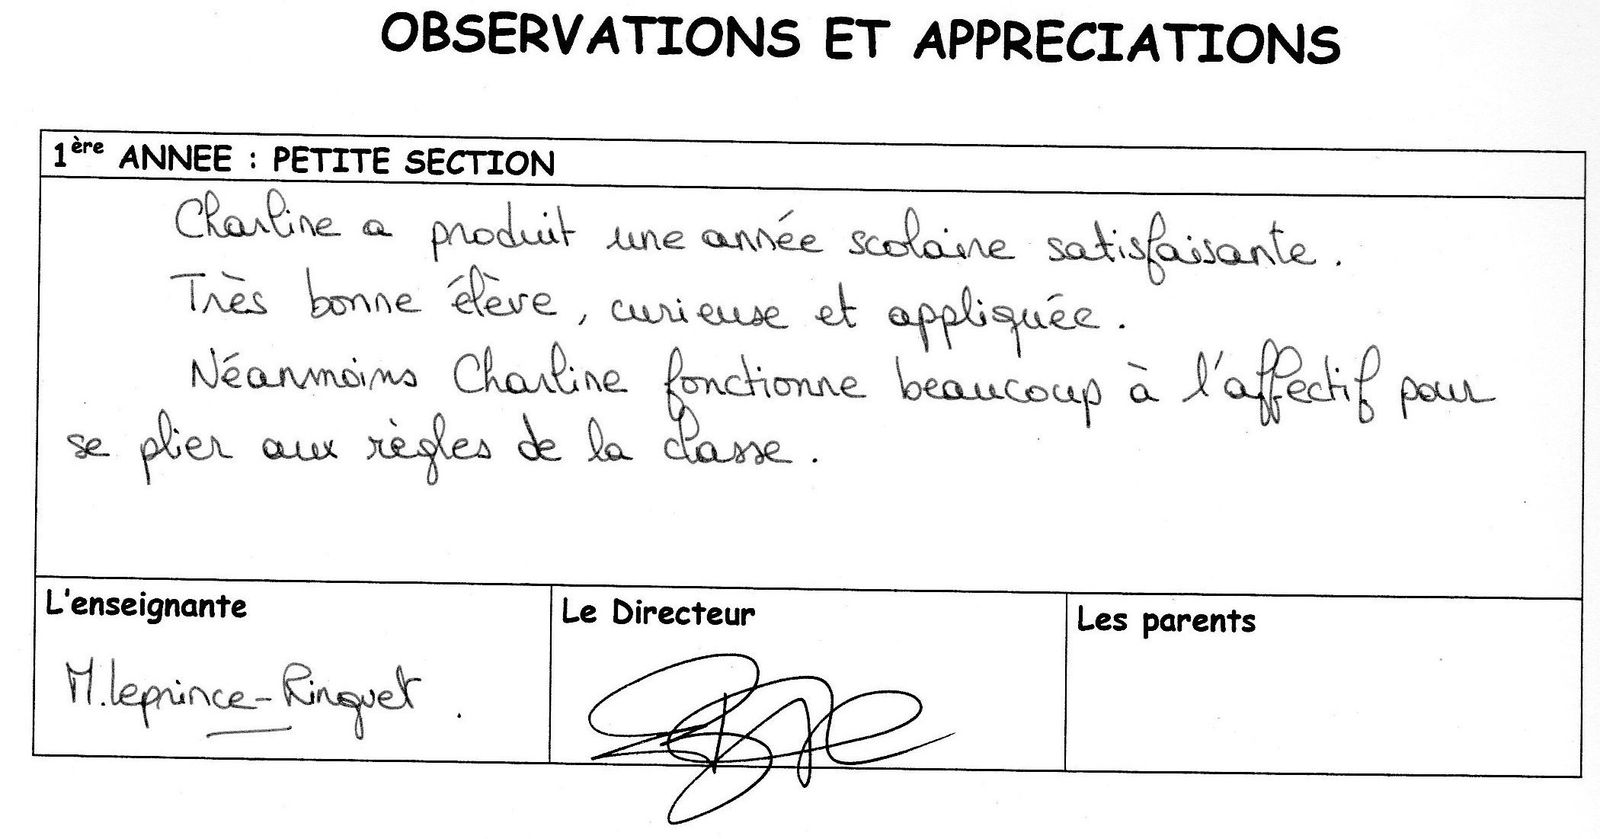 OBSERVATIONS ET APPRECIATIONS
1ère ANNEE : PETITE SECTION
Charline a produit une année scolaire satisfaisante.
Très bonne élève, curieuse et appliquée.
Néanmoins Charline fonctionne beaucoup à l'affectif pour
se plier aux règles de la classe.
L'enseignante
Le Directeur
Les parents
M.leprince-Ringuet.